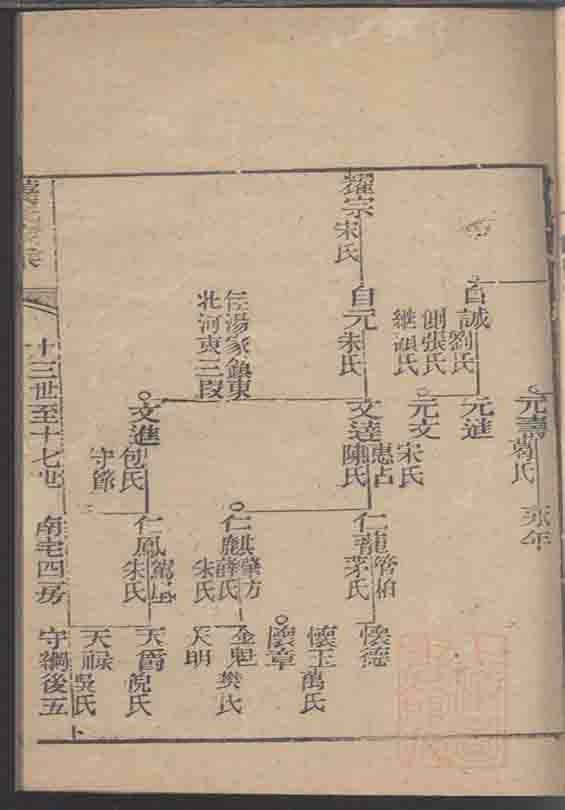 元壽 葛氏
永年
自誠 劉氏
側張氏
繼顧氏
元進
元文 宋氏
耀宗 宋氏
自元 朱氏
文達 惠占
陳氏
仁龍 管柏
茅氏
懷德
懷玉 萬氏
懷章
住湯家鎮東
北河東三段
仁麒 肇方
薛氏
朱氏
金魁 樊氏
天明
文進 包氏
守節
仁鳳
朱氏
天爵 倪氏
天祿 吳氏
十三世至十七世
南宅四房
守綱後五